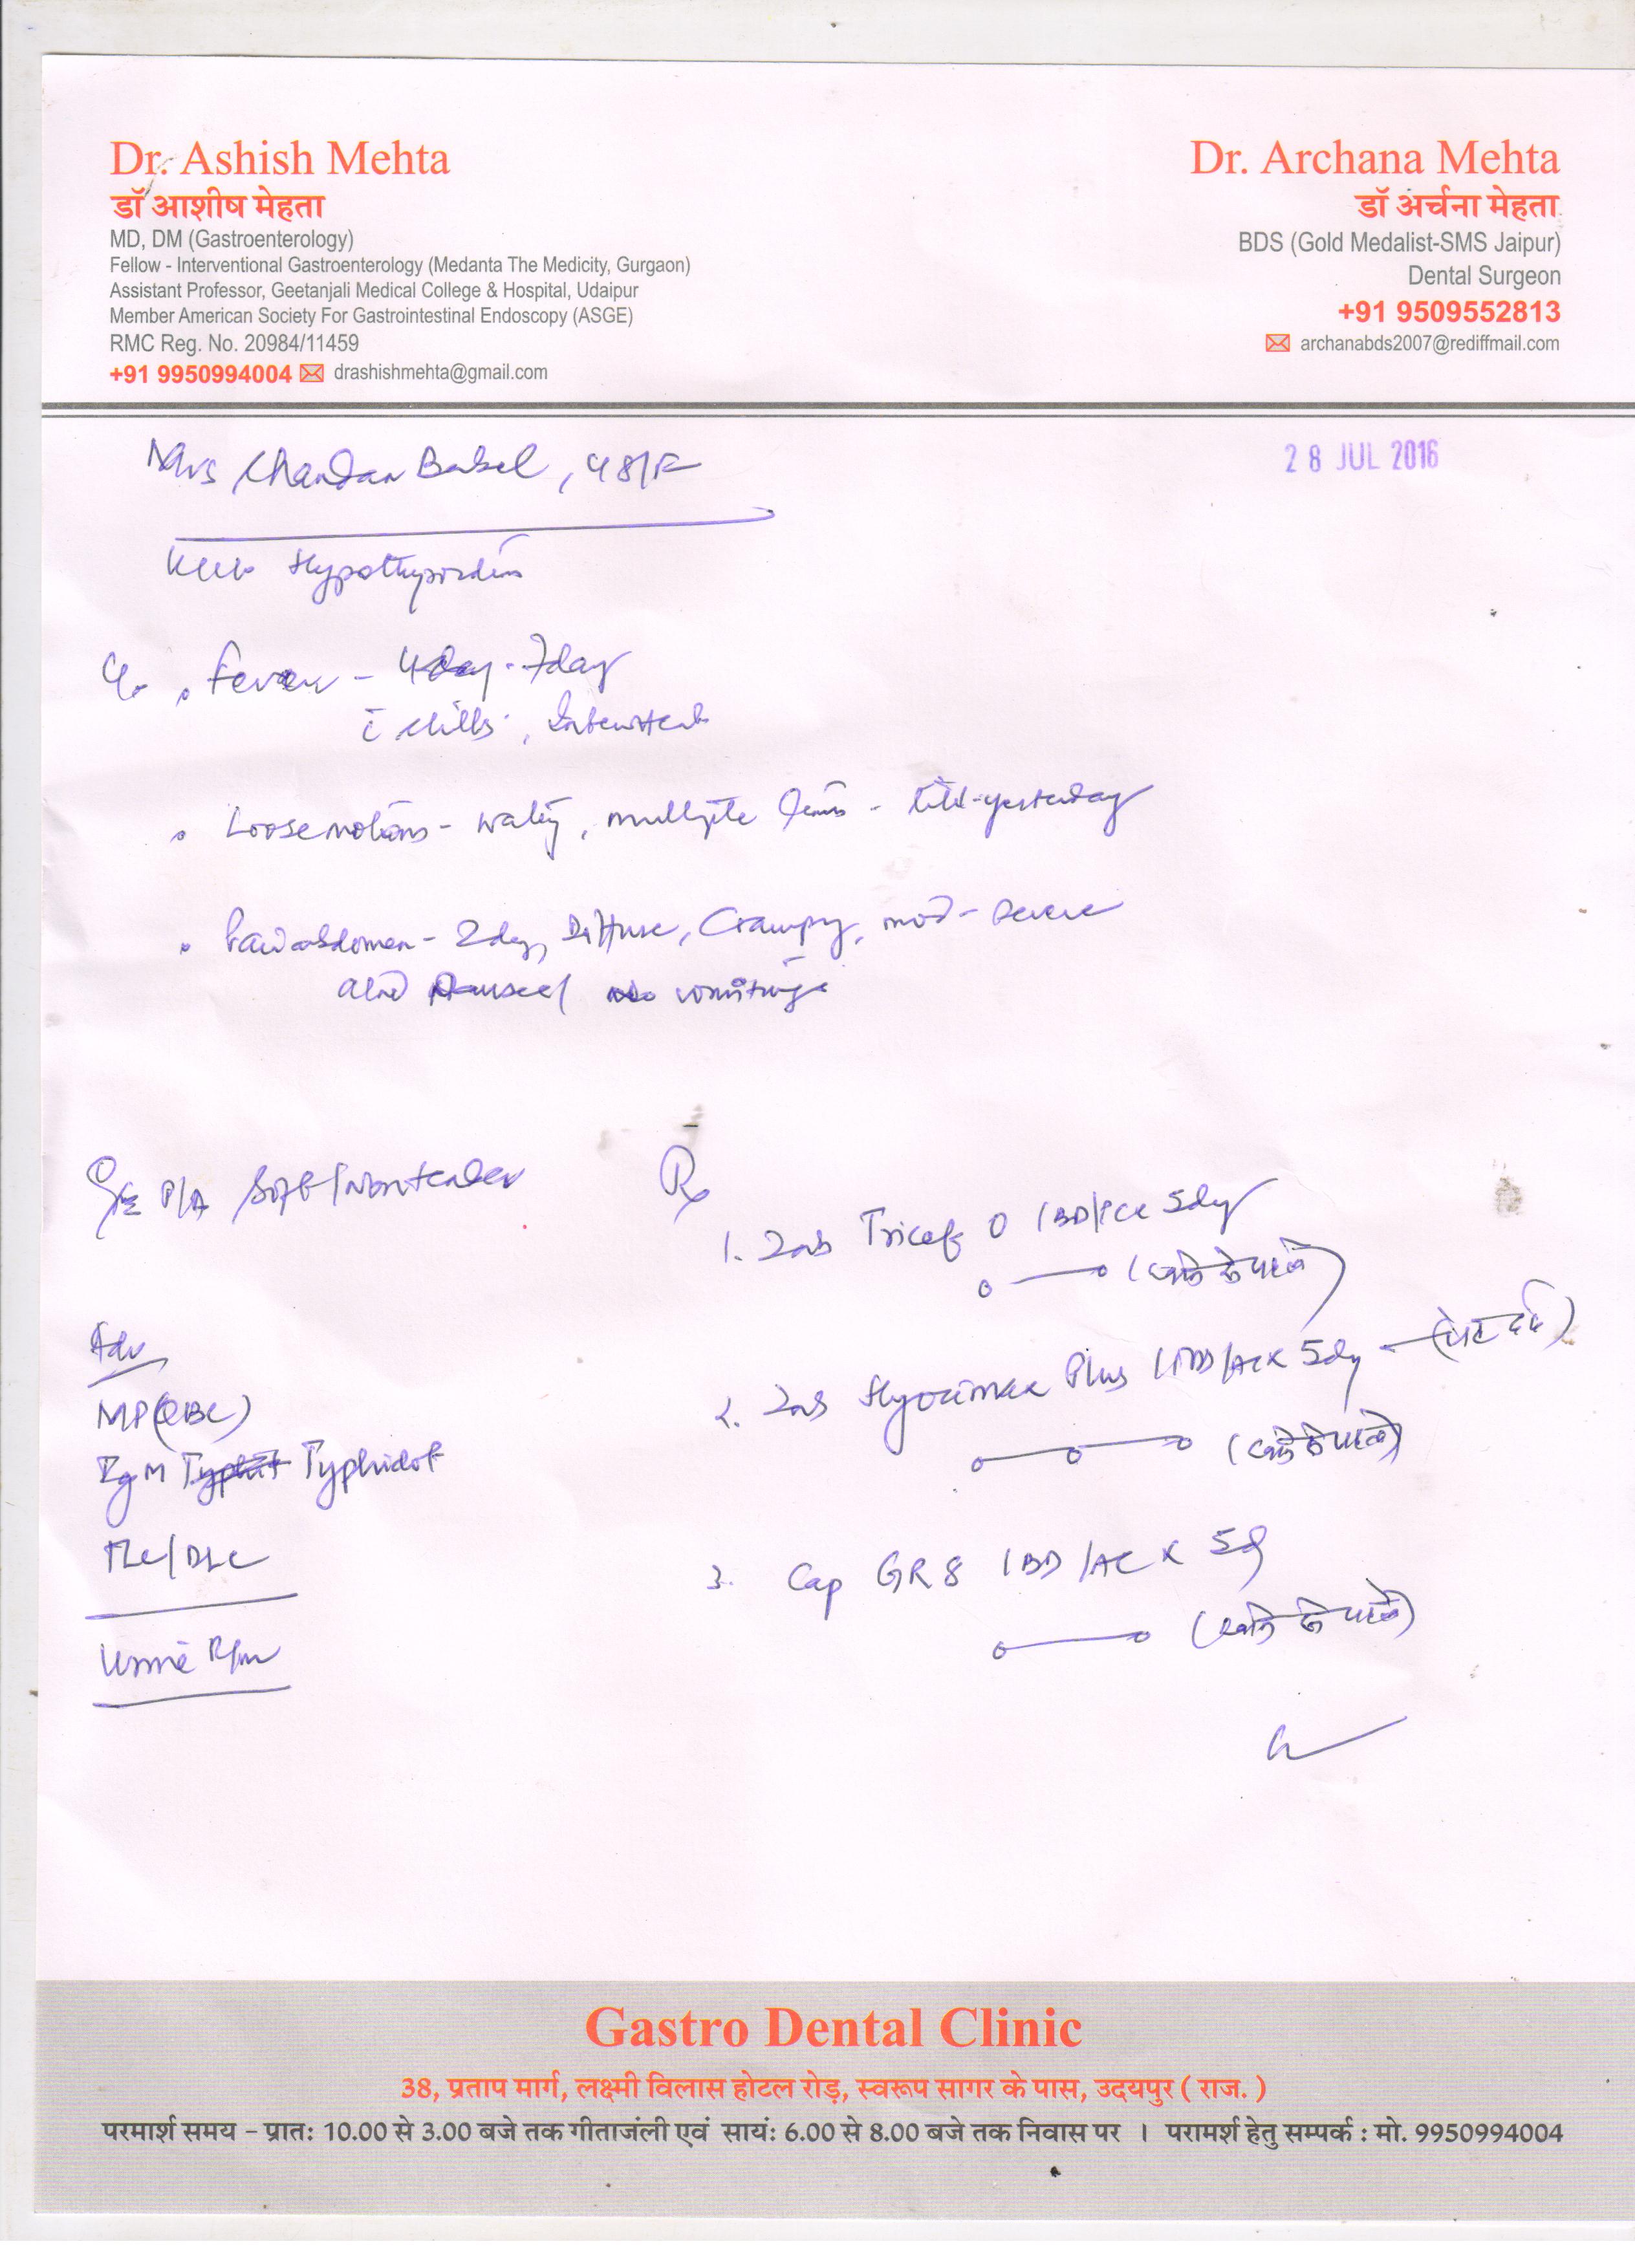 Dr. Ashish Mehta
डॉ आशीष मेहता
MD, DM (Gastroenterology)
Fellow - Interventional Gastroenterology (Medanta The Medicity, Gurgaon)
Assistant Professor, Geetanjali Medical College & Hospital, Udaipur
Member American Society For Gastrointestinal Endoscopy (ASGE)
RMC Reg. No. 20984/11459
+91 9950994004 drashishmehta@gmail.com
Dr. Archana Mehta
डॉ अर्चना मेहता
BDS (Gold Medalist-SMS Jaipur)
Dental Surgeon
+91 9509552813
archanabds2007@rediffmail.com
28 JUL 2016
Mrs Chandan Babel, 48/F
Hypothyroidism
C/o . Fever - 4day - 7day
c̄ chills, Intermittent
. Loose motions - watery, multiple - till yesterday
. Pain abdomen - 2day, Diffuse, Crampy, mod - severe
Nausea / no vomitings
O/E P/A Soft/Nontender
Adv
MP(QBC)
IgM Typhidot
TLC/DLC
Urine R/m
Rx
1. Tab Tricef O 1BD/PC x 5day
(खाने के पहले)
2. Tab Hyocimax Plus 1TDS/AC x 5day - (पेट दर्द)
(खाने के पहले)
3. Cap GR8 1BD/AC x 5d
(खाने के पहले)
Gastro Dental Clinic
38, प्रताप मार्ग, लक्ष्मी विलास होटल रोड़, स्वरूप सागर के पास, उदयपुर ( राज. )
परमार्श समय - प्रातः 10.00 से 3.00 बजे तक गीताजंली एवं सायंः 6.00 से 8.00 बजे तक निवास पर । परामर्श हेतु सम्पर्क : मो. 9950994004